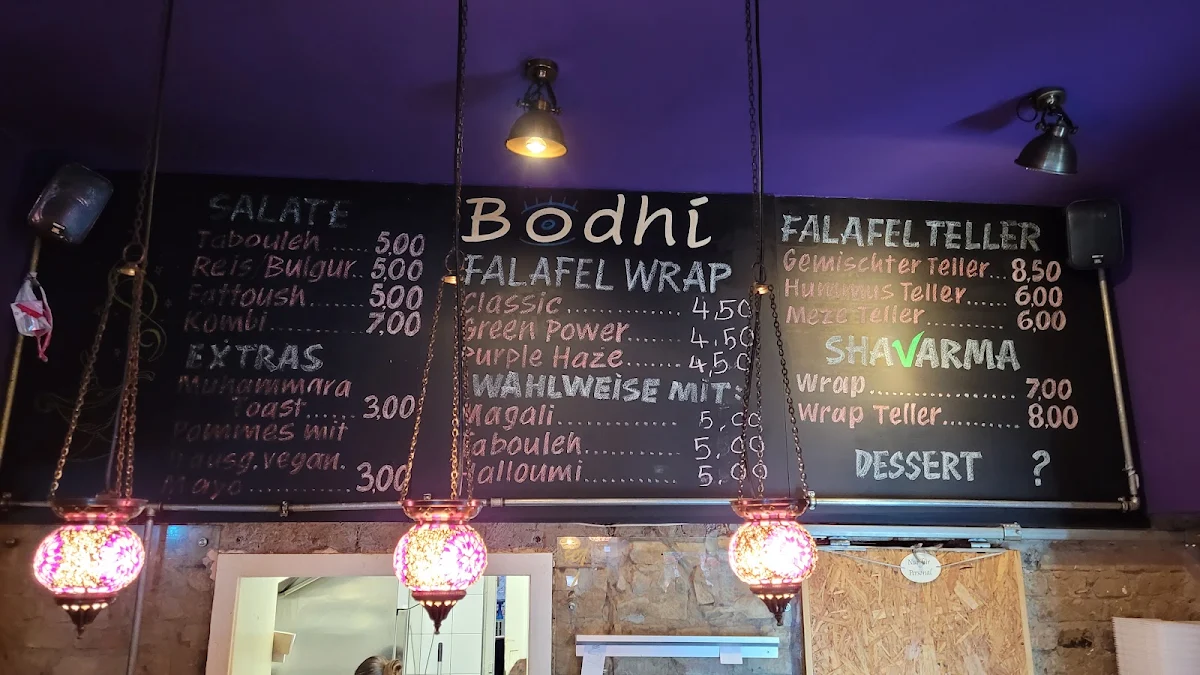 SALATE
Tabouleh...... 5,00
Reis/Bulgur.. 5,00
Fattoush....... 5,00
Kombi.......... 7,00
EXTRAS
Muhammara
Toast...... 3,00
Pommes mit
hausg. vegan.
Mayo.......... 3,00
Bodhi
FALAFEL WRAP
Classic.............. 4,50
Green Power....... 4,50
Purple Haze....... 4,50
WAHLWEISE MIT:
Magali............... 5,00
Tabouleh............ 5,00
Halloumi............ 5,00
FALAFEL TELLER
Gemischter Teller.. 8,50
Hummus Teller...... 6,00
Meze Teller.......... 6,00
SHAVARMA
Wrap................. 7,00
Wrap Teller......... 8,00
DESSERT ?
Nur für
Personal